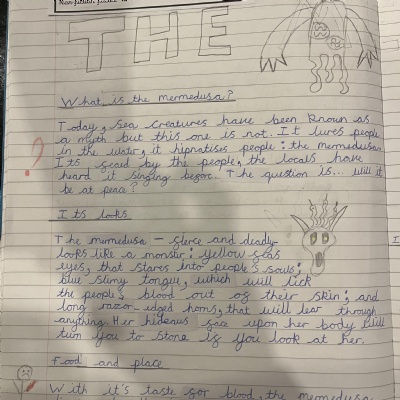 THE
What is the mermedusa?
Today, sea creatures have been known as
a myth but this one is not. It lures people
in the water, it hipnatises people: the mermedusa.
Its feard by the people, the locals have
heard it singing before. The question is... will it
be at peace?
Its looks
The mermedusa - fierce and deadly-
looks like a monster: yellow
eyes, that stares into people's souls;
blue slimy tongue, which will lick
the people's blood out of their skin; and
long razor-edged horns, that will tear through
anything. Her hideaus face upon her body will
turn you to stone if you look at her.
Food and place
With it's taste for blood, the mermedusa